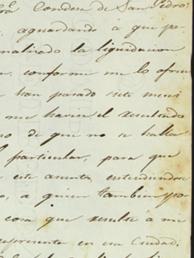 Condesa de San Pedro
aguardando á que pe-
nalizado la liquidacion
conforme me lo ofre
han pasado seis mesi
me hacer el resultado
de que no se halla
particular, para que
este asunto, entendiendose
á quien tambien
cosa que resulte á mi
represente en esa Ciudad.